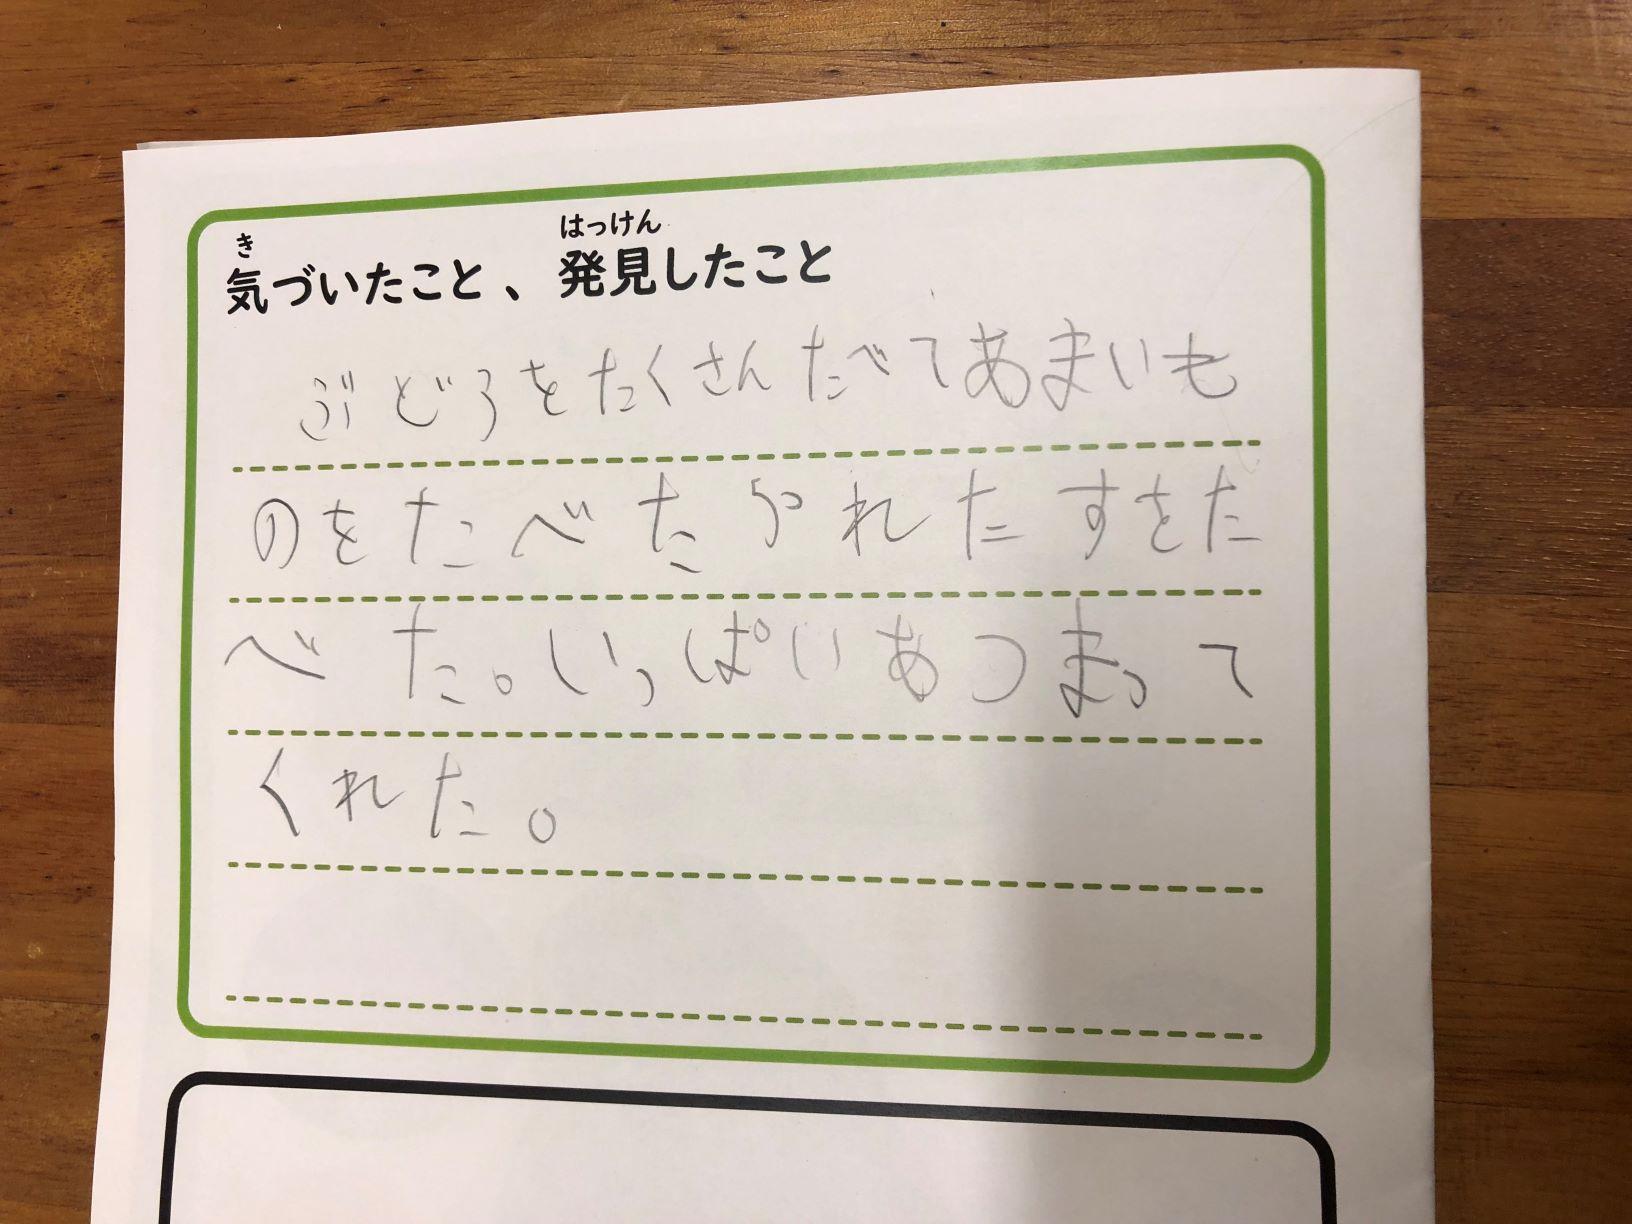 き
はっけん
気づいたこと、発見したこと
ぶどうをたくさんたべてあまいも
のをたべたうれたすをた
べた。いっぱいあつまって
くれた。